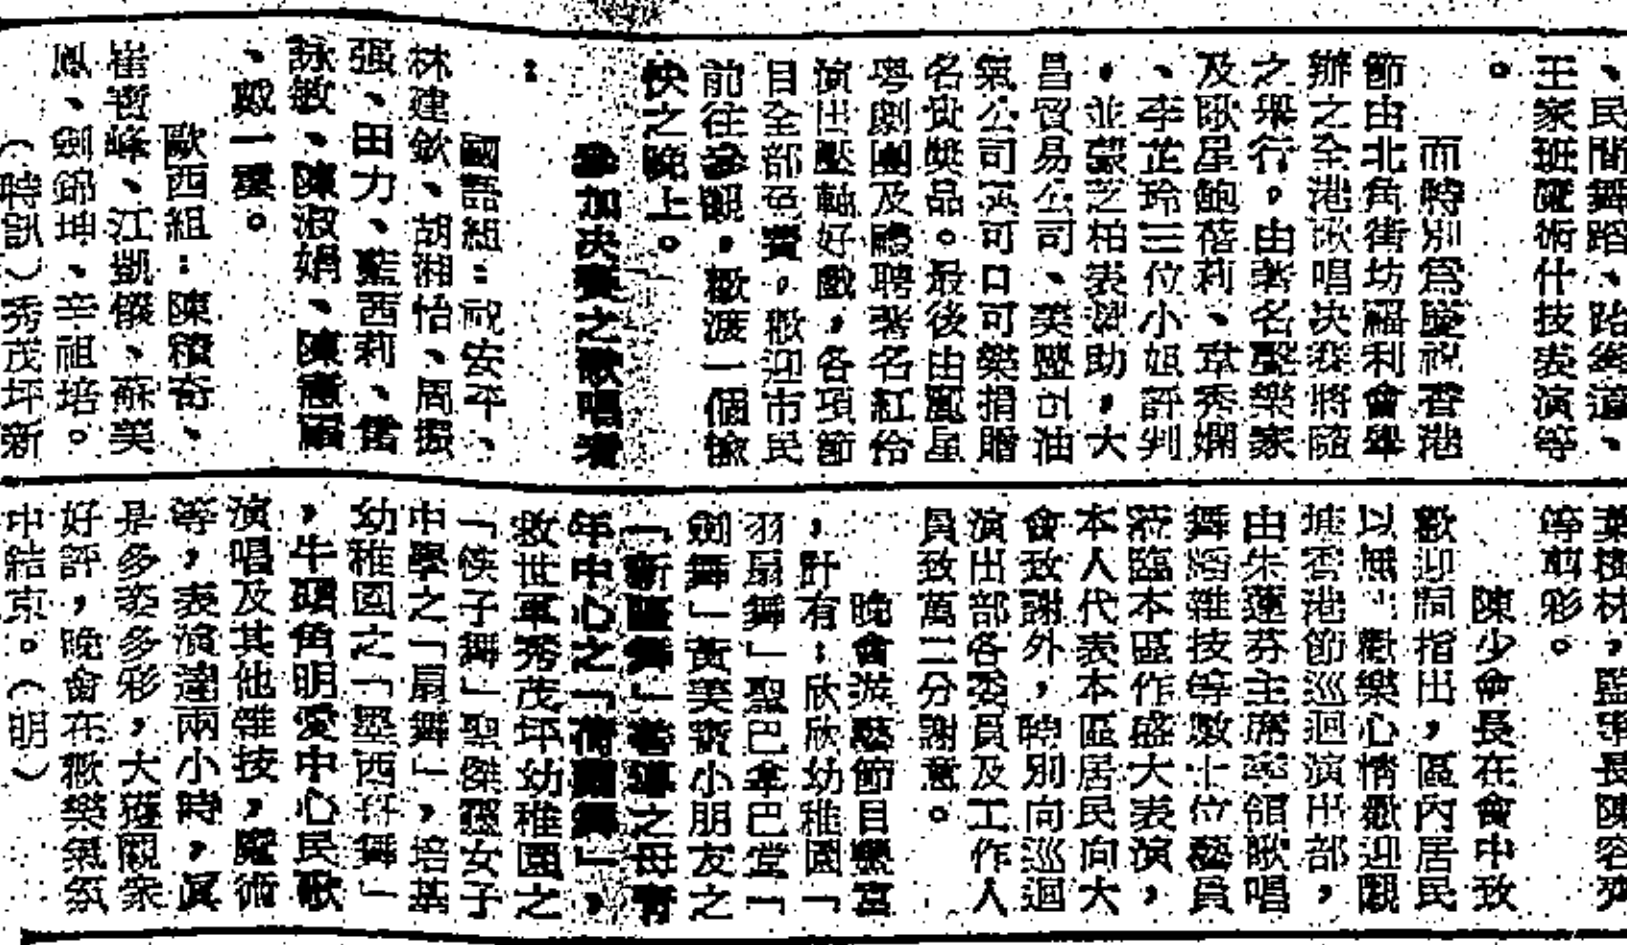 、民間舞蹈、跆拳道、
王家班魔術什技表演等
。
而時別爲慶祝香港
節由北角街坊福利會舉
辦之全港歌唱決賽將隨
之舉行。由著名聲樂家
及歌星鮑蓓莉、韋秀嫻
、李芷玲三位小姐評判
，並蒙芝柏表贊助，大
昌貿易公司、美
氣公司及可口可樂捐贈
名貴獎品。最後由鳳星
粵劇團及禮聘著名紅伶
演出壓軸好戲，各項節
目全部免費，歡迎市民
前往參觀，歡渡一個愉
快之晚上。
參加決賽之歌唱者
：
國語組：祝安平、
林建欽、胡湘怡、周振
强、田力、藍西莉、雷
詠敏、陳淑娟、陳蕙
、戴一
歐西組：陳積奇、
崔晢峰、江凱儀、蘇美
鳳、劍錦坤、辛祖培。
（時訊）秀茂坪新
葉樹林，監事長陳容
等剪彩。
陳少會長在會中致
歡迎詞指出，區內居民
以無比歡樂心情歡迎觀
塘香港節巡迴演出部，
由朱蓮芬主席率領歌唱
舞蹈雜技等數十位藝員
蒞臨本區作盛大表演，
本人代表本區居民向大
會致謝外，時別向巡迴
演出部各委員及工作人
員致萬二分謝意。
晚會游藝節目豐富
，計有：欣欣幼稚園「
羽扇舞」聖巴拿巴堂「
劍舞」黃美寶小朋友之
「新疆舞」巷軍之母青
年中心之「舞」，
救世軍秀茂坪幼稚園之
「筷子舞」聖傑靈女子
中學之「扇舞」，培基
幼稚園之「墨西哥舞」
，牛頭角明愛中心民歌
演唱及其他雜技，魔術
等，表演達兩小時，眞
是多姿多彩，大獲觀衆
好評，晚會在歡樂氣氛
中結束。（明）